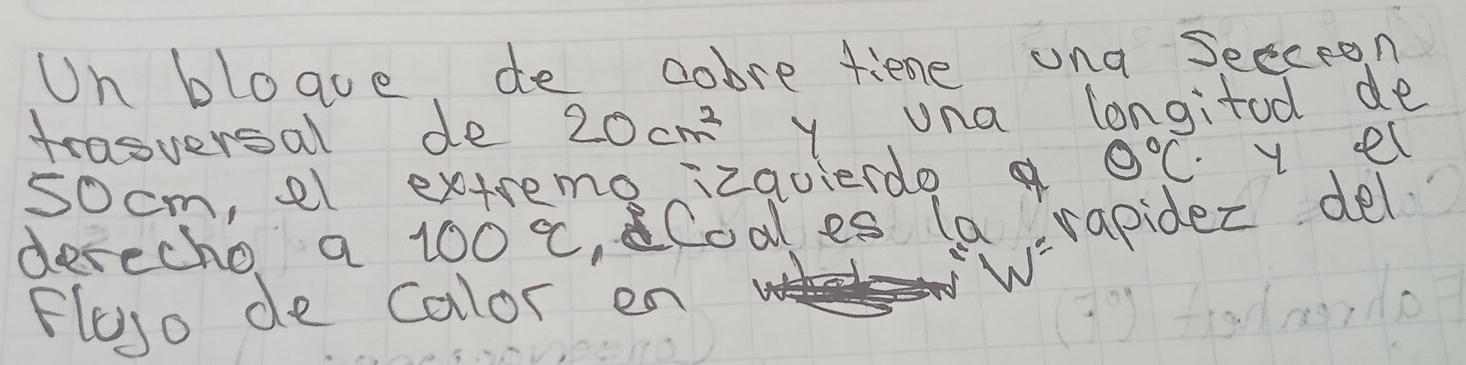 Un bloque de cobre tiene una Seccion
trasversal de 20cm² y una longitud de
50cm, el extremo izquierdo a 0°C. y el
derecho a 100°C, Cual es la rapidez del
Flujo de Calor en "W"